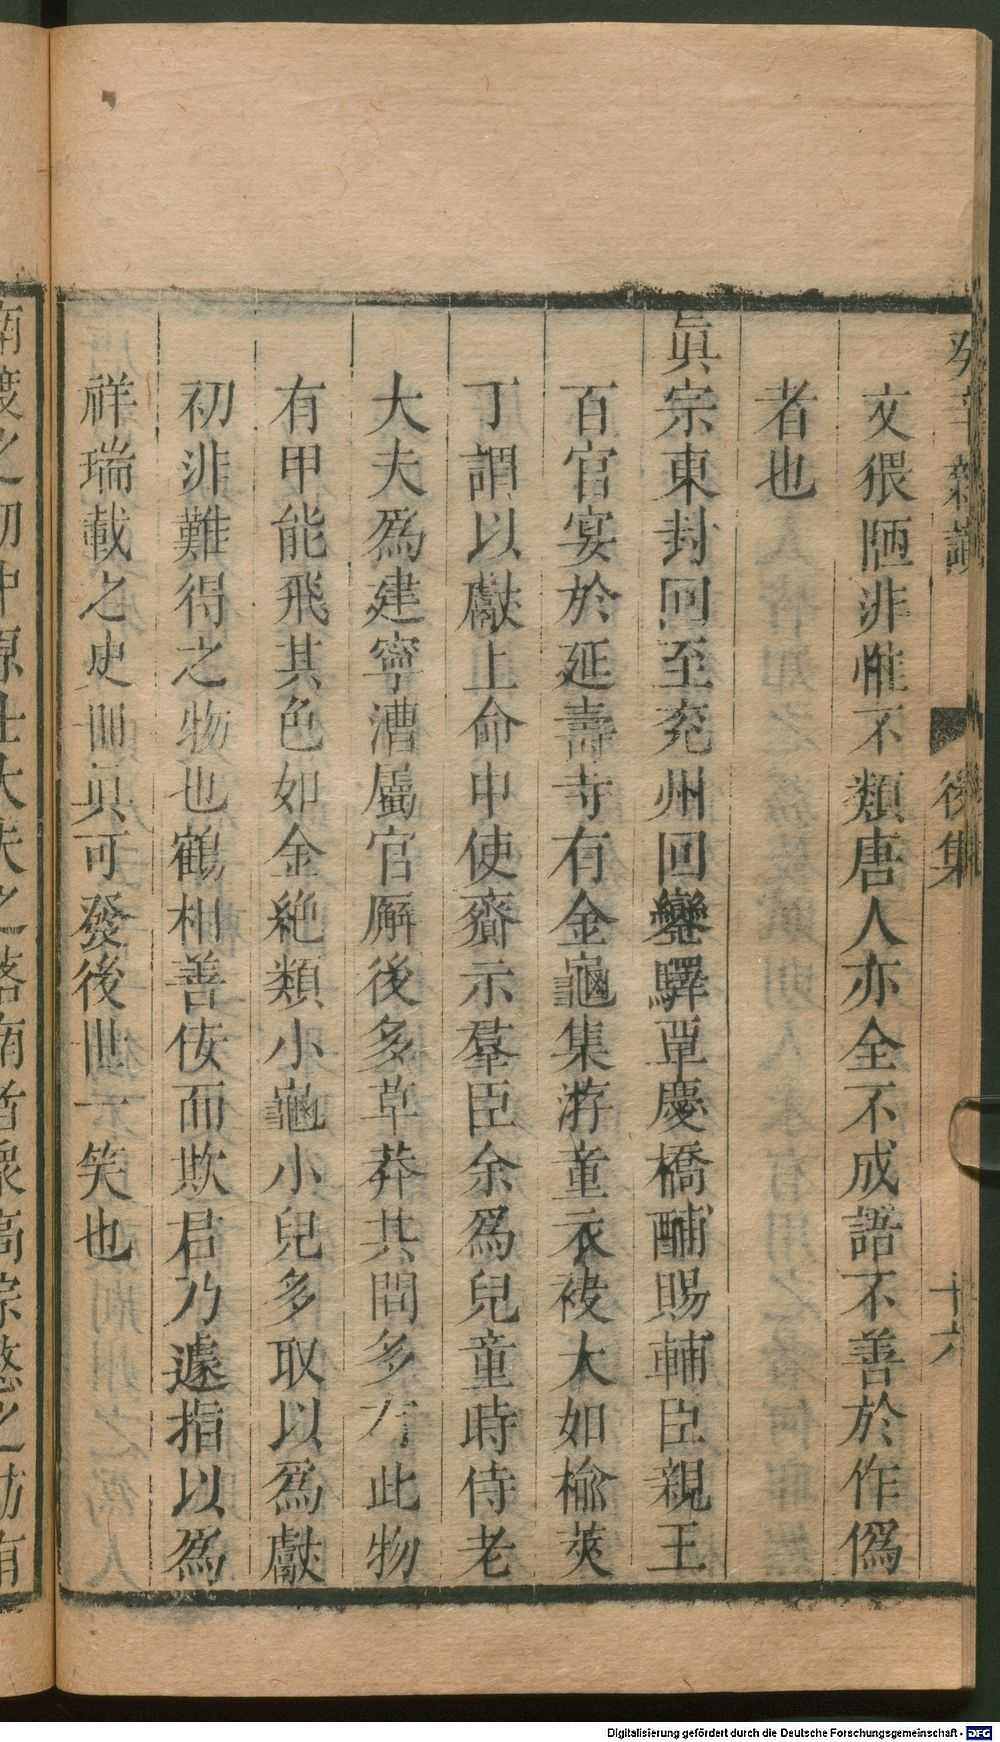 癸辛雜識
後集
十六
文猥陋非惟不類唐人亦全不成語不善於作僞
者也
眞宗東封回至兖州回鑾驛覃慶橋酺賜輔臣親王
百官宴於延壽寺有金龜集游童衣袂大如楡莢
丁謂以獻上命中使齎示羣臣余爲兒童時侍老
大夫爲建寧漕屬官廨後多草莽其間多有此物
有甲能飛其色如金絶類小龜小兒多取以爲獻
初非難得之物也鶴相善佞而欺君乃遽指以爲
祥瑞載之史冊眞可發後世一笑也
南渡之初中原士大夫之落南者
高宗愍之
有
Digitalisierung gefördert durch die Deutsche Forschungsgemeinschaft - DFG